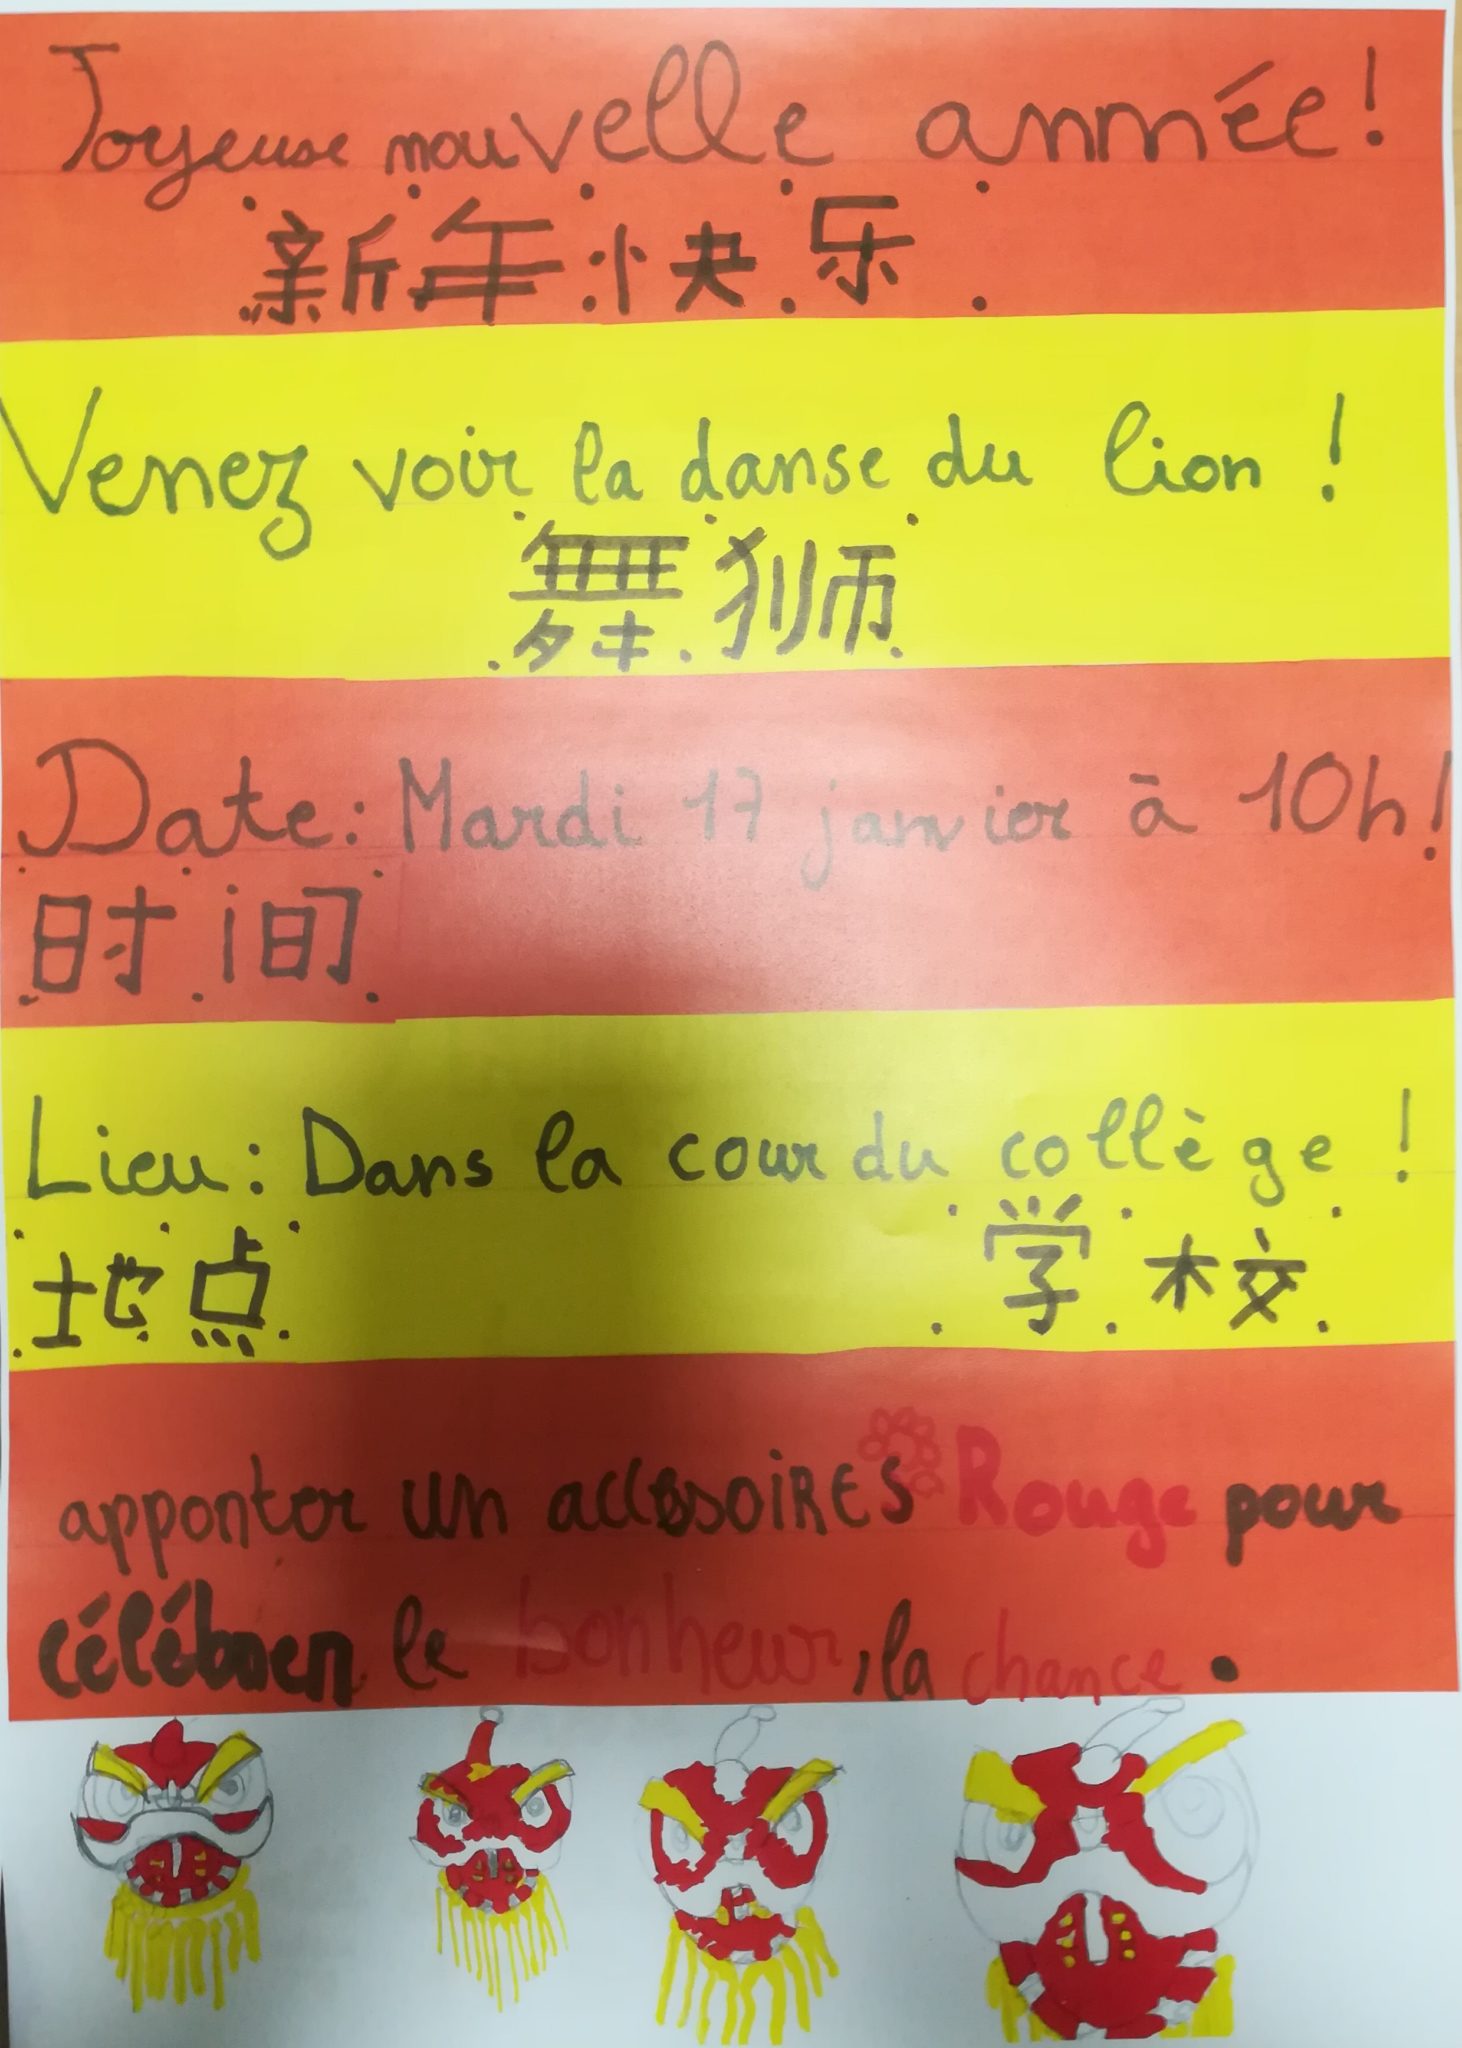 Joyeuse nouvelle année!
新年快乐
Venez voir la danse du lion !
舞狮
Date: Mardi 17 janvier à 10h!
时间
Lieu: Dans la cour du collège !
地点 学校
apporter un accessoires Rouge pour
célébrer le bonheur, la chance.